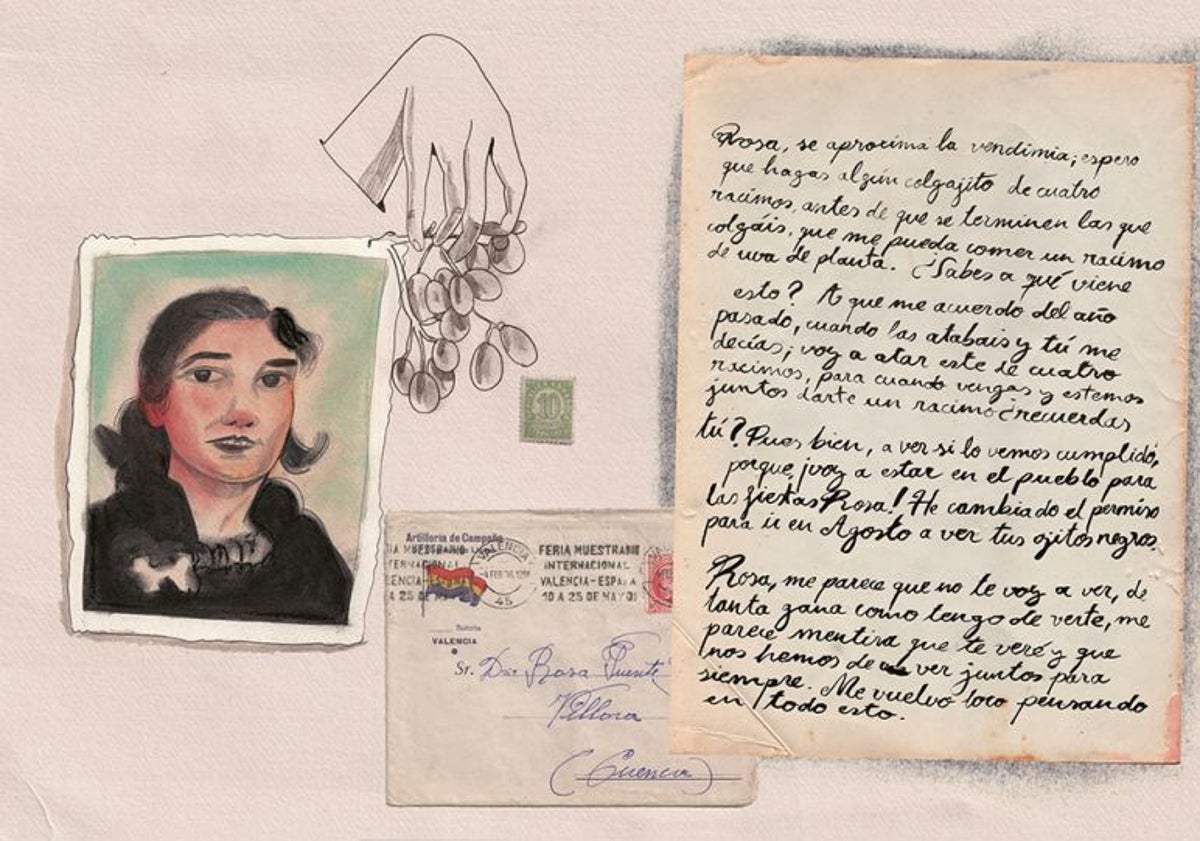 10
Artillería de Campaña
VALENCIA
FERIA MUESTRARIO
INTERNACIONAL
VALENCIA-ESPAÑA
10 A 25 DE MAYO
A 25 DE MAYO
45
Batería
VALENCIA
Sr. Dña Rosa Fuente
Víllora
(Cuenca)
Rosa, se aprocima la vendimia; espero
que hagas algún colgajito de cuatro
racimos, antes de que se terminen las que
colgáis, que me pueda comer un racimo
de uva de planta. ¿Sabes a qué viene
esto? A que me acuerdo del año
pasado, cuando las atabais y tú me
decías; voy a atar este de cuatro
racimos, para cuando vengas y estemos
juntos darte un racimo ¿recuerdas
tú? Pues bien, a ver si lo vemos cumplido,
porque ¡voy a estar en el pueblo para
las fiestas Rosa! He cambiado el permiso
para ir en Agosto a ver tus ojitos negros.
Rosa, me parece que no te voy a ver, de
tanta gana como tengo de verte, me
parece mentira que te veré y que
nos hemos de ver juntos para
siempre. Me vuelvo loco pensando
en todo esto.